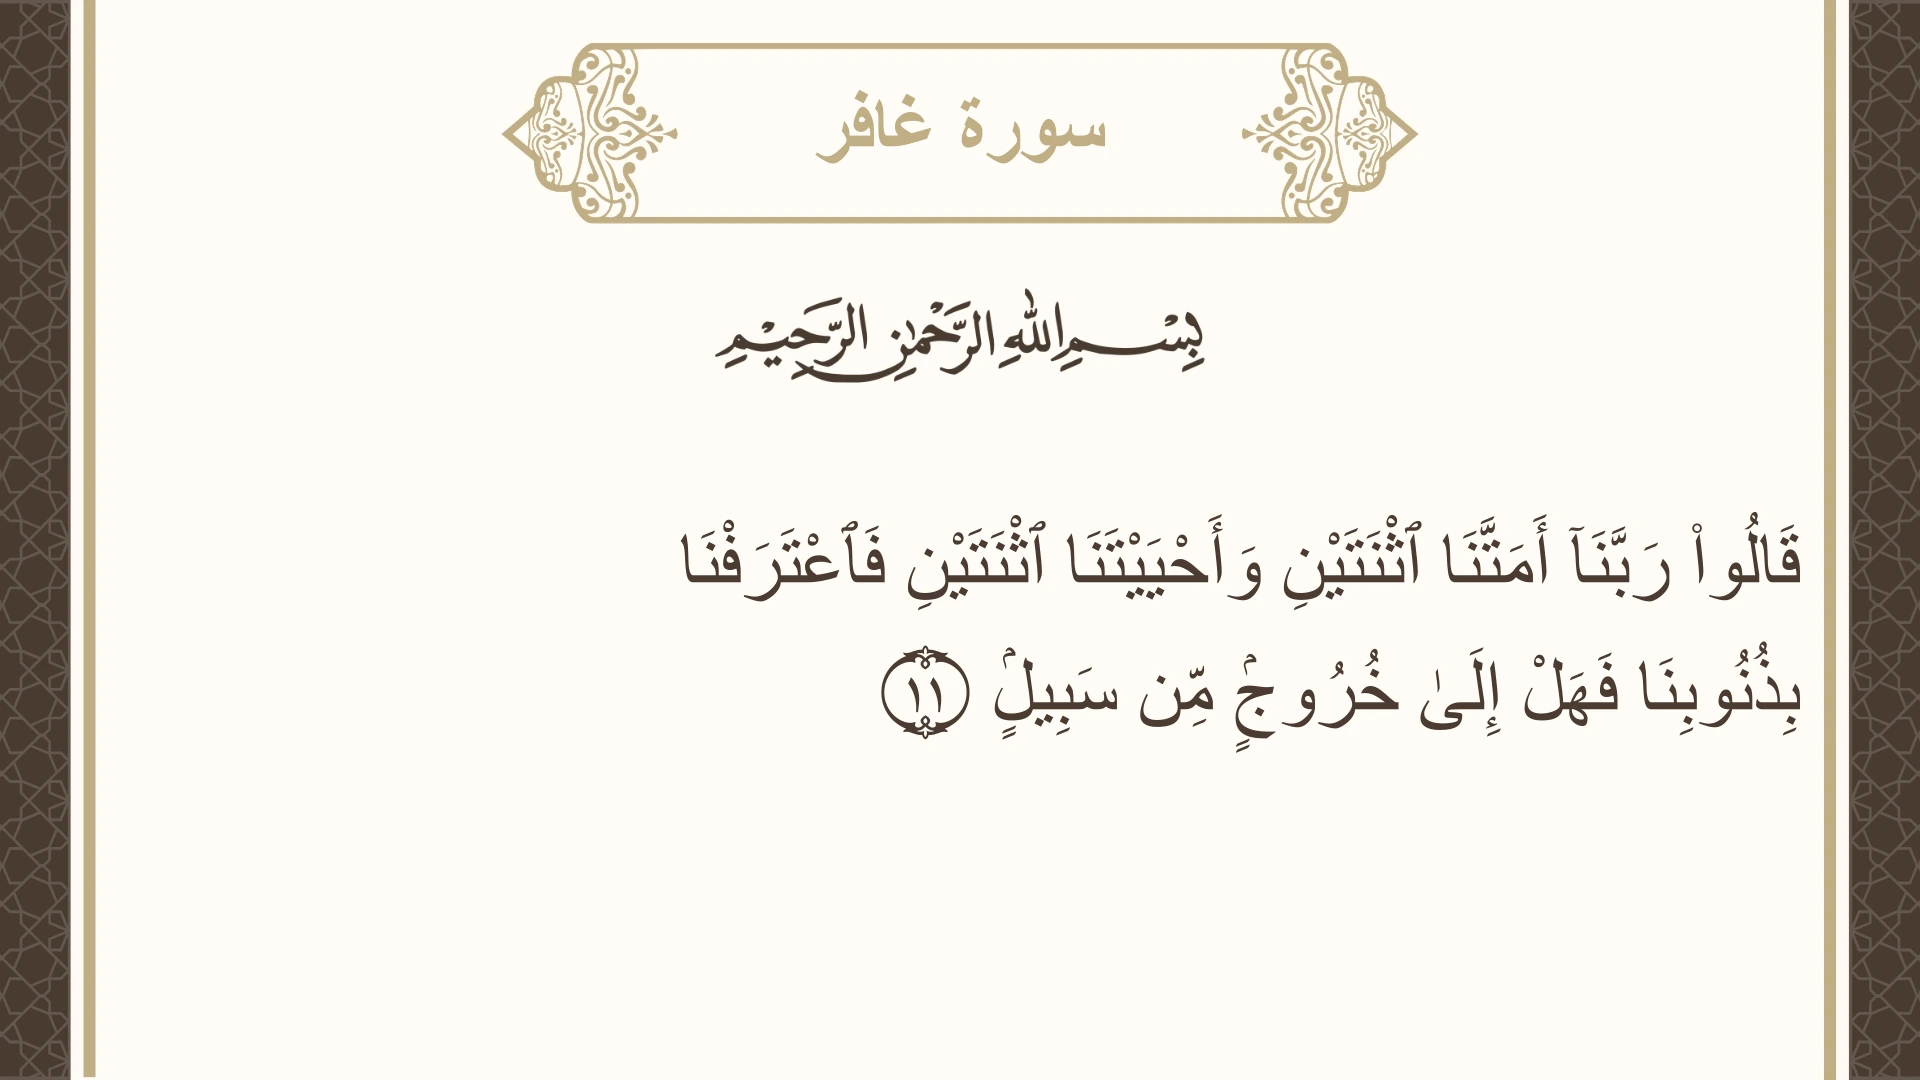 سورة غافر
بِسْمِ اللهِ الرَّحْمٰنِ الرَّحِيْمِ
قَالُوا۟ رَبَّنَآ أَمَتَّنَا ٱثْنَتَيْنِ وَأَحْيَيْتَنَا ٱثْنَتَيْنِ فَٱعْتَرَفْنَا
بِذُنُوبِنَا فَهَلْ إِلَىٰ خُرُوجٍۢ مِّن سَبِيلٍۢ ١١